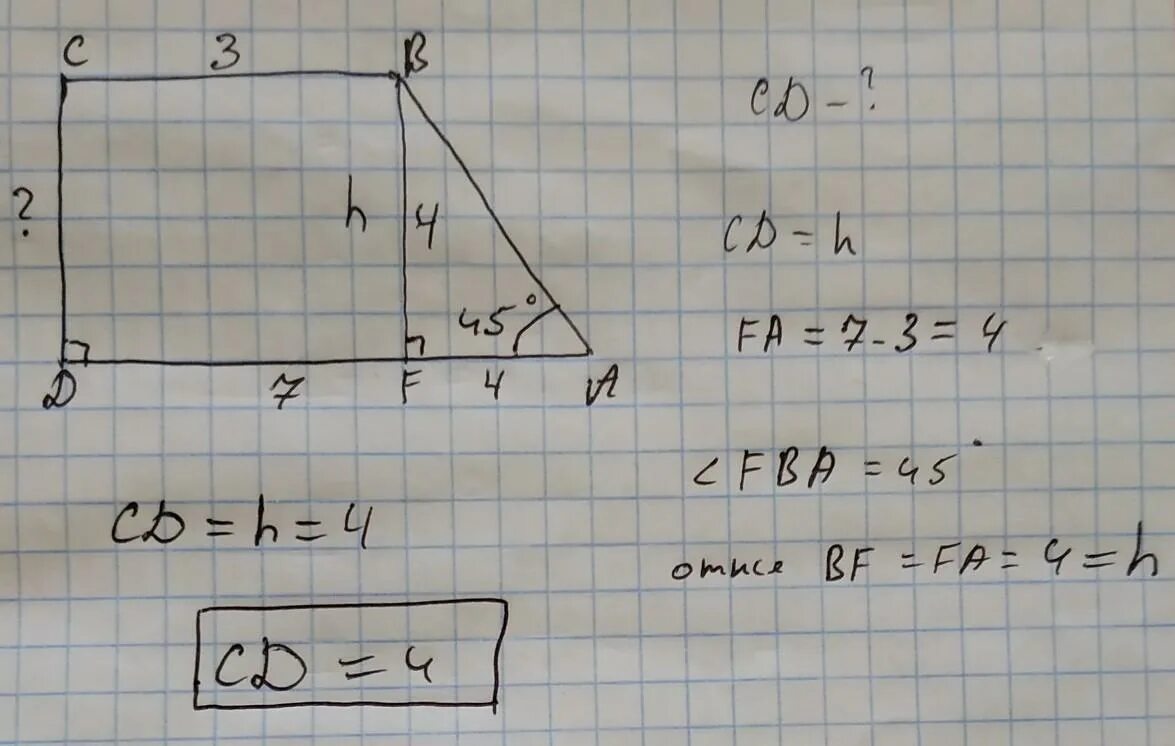 C 3 B
CD - ?
? h 4
CD = h
45°
FA = 7 - 3 = 4
D 7 F 4 A
< FBA = 45°
CD = h = 4
отже BF = FA = 4 = h
CD = 4